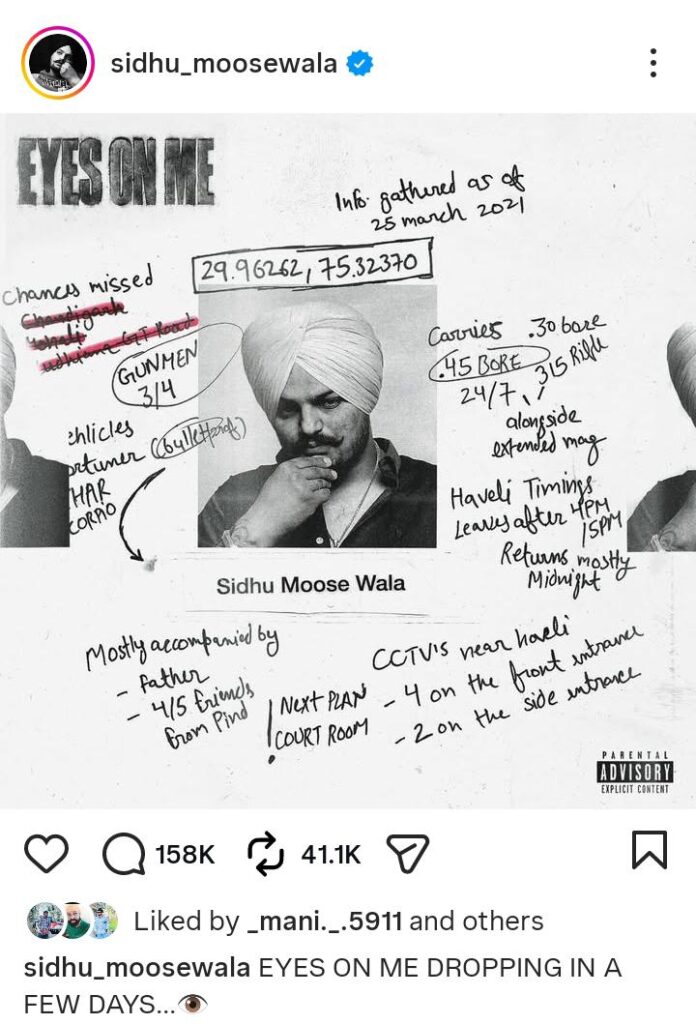 sidhu_moosewala
EYES ON ME
Info gathered as of
25 march 2021
29.96262, 75.32370
Chances missed
Chandigarh
Mohali
Ludhiana GT Road
GUNMEN
3/4
ehlicles
ortuner (bulletproof)
HAR
CORPIO
Carries .30 bore
.45 BORE 315 Rifle
24/7
alongside
extended mag
Haveli Timings
Leaves after 4PM
/5PM
Returns mostly
Midnight
Sidhu Moose Wala
Mostly accompanied by
- Father
- 4/5 friends
from Pind
! NEXT PLAN
COURT ROOM
CCTV's near haveli
- 4 on the front entrance
- 2 on the side entrance
PARENTAL
ADVISORY
EXPLICIT CONTENT
158K 41.1K
Liked by _mani._.5911 and others
sidhu_moosewala EYES ON ME DROPPING IN A
FEW DAYS...👁️